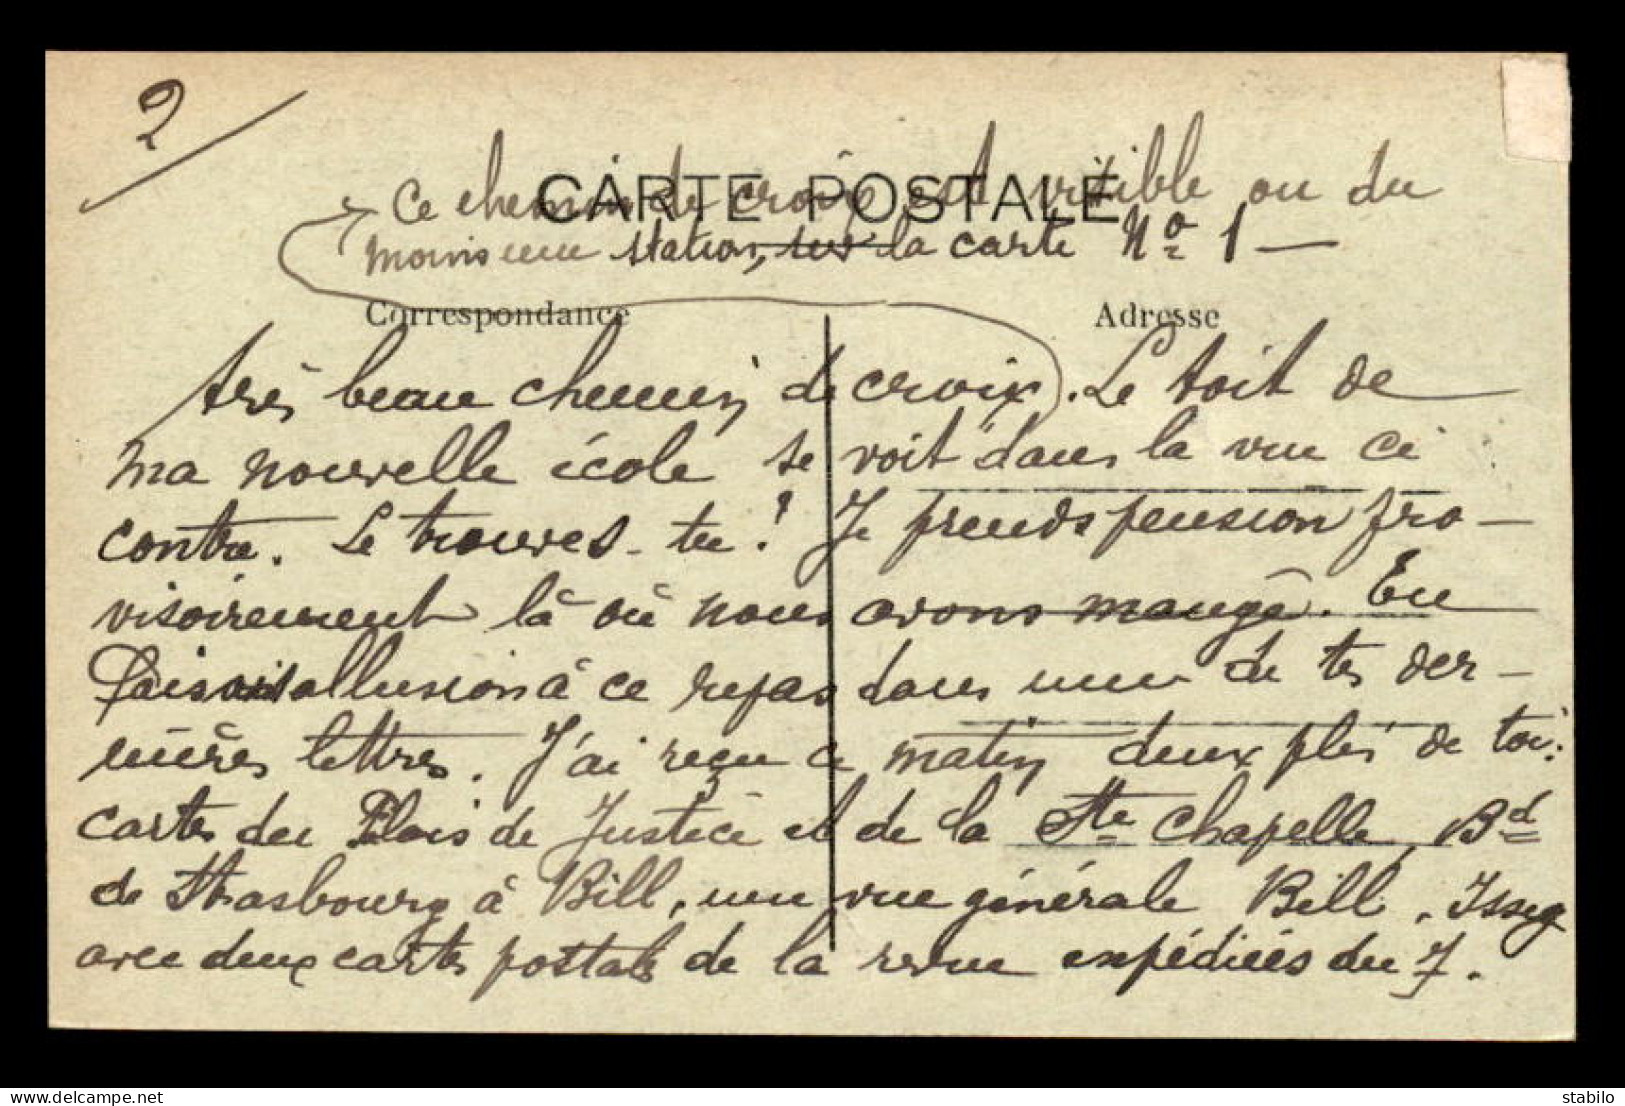 2
CARTE POSTALE
Ce chemin de croix est visible ou du
moins une station, sur la carte No 1 —
Correspondance
Adresse
très beau chemin de croix. Le toit de
ma nouvelle école se voit dans la vue ci
contre. Le trouves-tu ? Je prends pension pro-
visoirement là où nous avons mangé. Tu
faisais allusion à ce repas dans une de tes der-
nières lettres. J'ai reçu ce matin deux plis de toi :
cartes du Palais de Justice et de la Ste Chapelle, Bd
de Strasbourg à Bill, une vue générale Bill. Issy
avec deux cartes postales de la revue expédiées du 7.
delcampe.net
stabilo